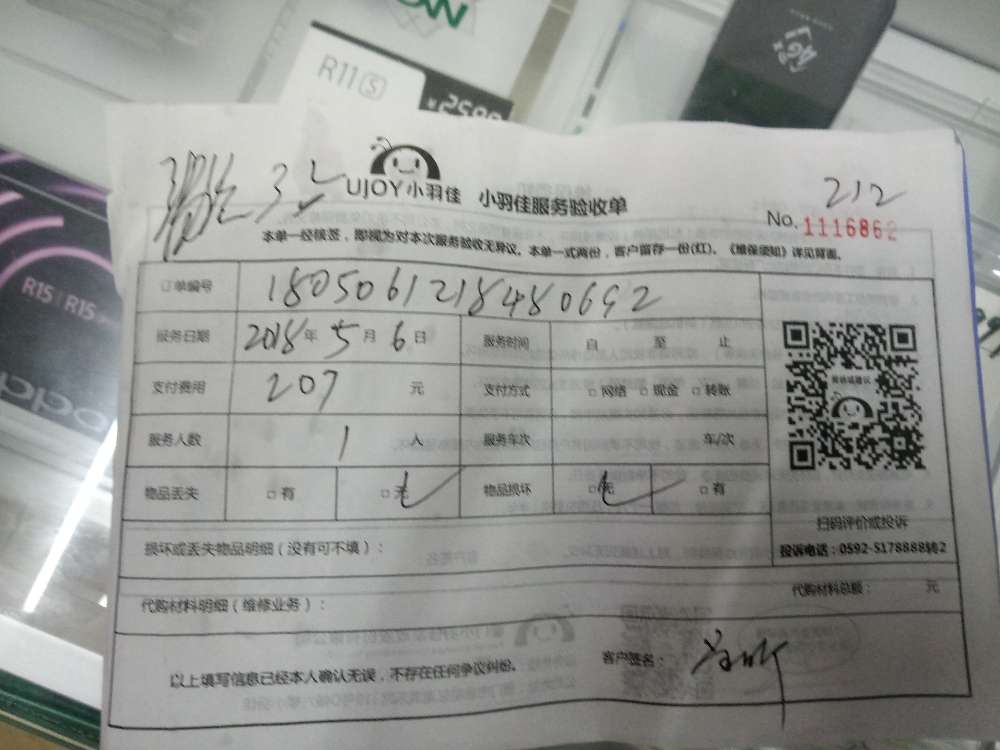 R11 S
¥2599
4G+
R15 | R15
oppo
UJOY小羽佳 小羽佳服务验收单
212
No. 1116862
本单一经核签，即视为对本次服务验收无异议。本单一式两份，客户留存一份(红)。《维保须知》详见背面。
订单编号 1805061218480692
服务日期 2018年5月6日 服务时间 自 至 止
支付费用 207 元 支付方式 □ 网络 □ 现金 □ 转账
服务人数 1 人 服务车次 车/次
物品丢失 □ 有 □ 无 物品损坏 □ 无 □ 有
扫码评价或投诉
投诉电话：0592-5178888转2
损坏或丢失物品明细（没有可不填）：
代购材料明细（维修业务）： 代购材料总额： 元
以上填写信息已经本人确认无误，不存在任何争议纠纷。 客户签名：